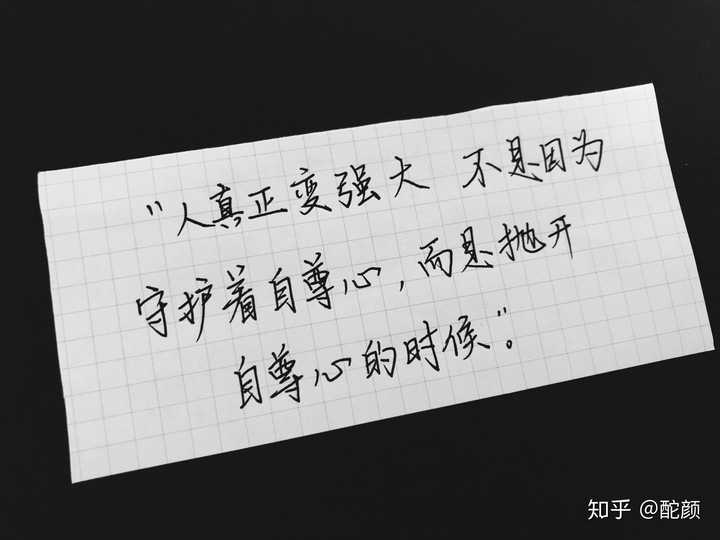 “人真正变强大 不是因为
守护着自尊心,而是抛开
自尊心的时候”。
知乎 @酡颜